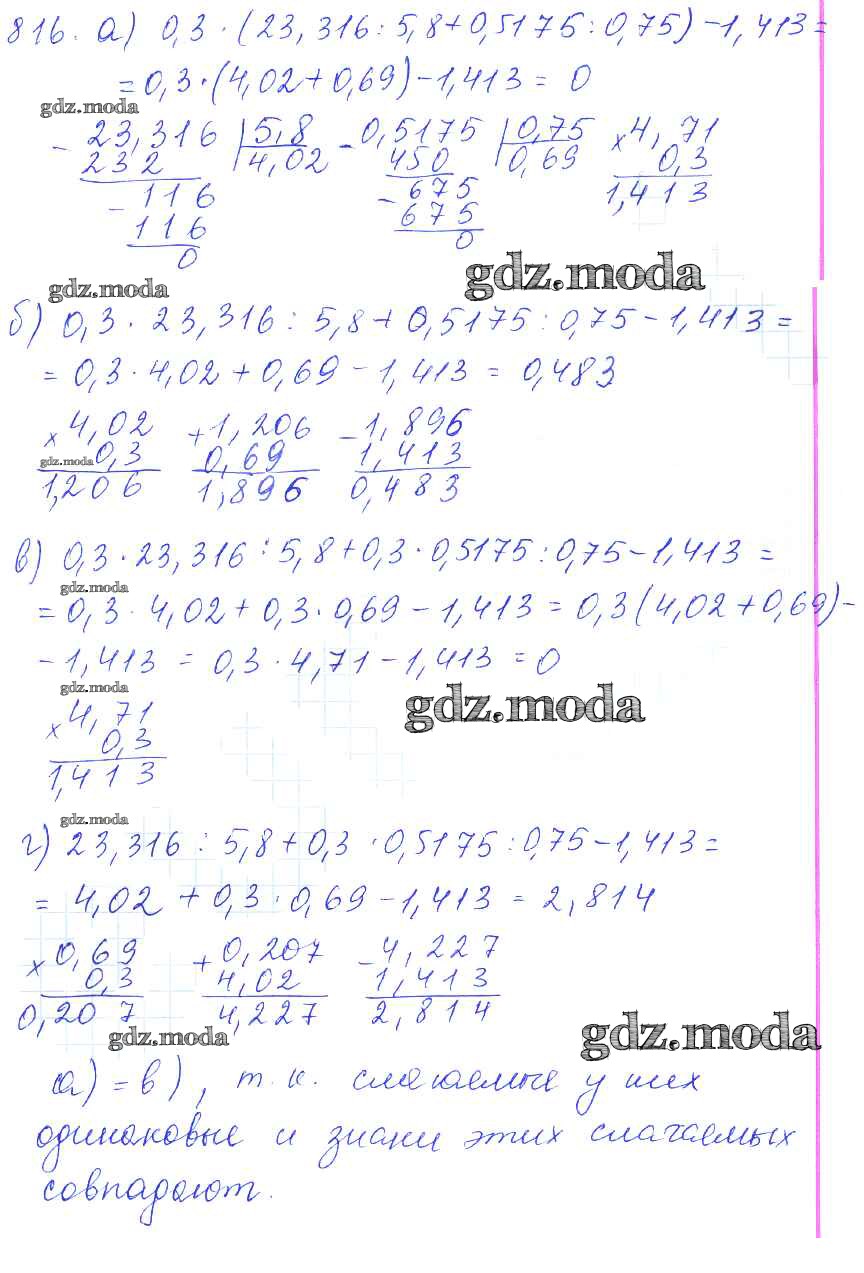 816. а) 0,3 · (23,316 : 5,8 + 0,5175 : 0,75) − 1,413 =
= 0,3 · (4,02 + 0,69) − 1,413 = 0
gdz.moda
− 23,316 | 5,8 − 0,5175 | 0,75 × 4,71
232 4,02 450 0,69 0,3
− 116 − 675 1,413
116 675
0 0
gdz.moda
gdz.moda
б) 0,3 · 23,316 : 5,8 + 0,5175 : 0,75 − 1,413 =
= 0,3 · 4,02 + 0,69 − 1,413 = 0,483
× 4,02 + 1,206 − 1,896
gdz.moda 0,3 0,69 1,413
1,206 1,896 0,483
в) 0,3 · 23,316 : 5,8 + 0,3 · 0,5175 : 0,75 − 1,413 =
gdz.moda
= 0,3 · 4,02 + 0,3 · 0,69 − 1,413 = 0,3 (4,02 + 0,69) −
− 1,413 = 0,3 · 4,71 − 1,413 = 0
gdz.moda
gdz.moda
× 4,71
0,3
1,413
gdz.moda
г) 23,316 : 5,8 + 0,3 · 0,5175 : 0,75 − 1,413 =
= 4,02 + 0,3 · 0,69 − 1,413 = 2,814
× 0,69 + 0,207 − 4,227
0,3 4,02 1,413
0,207 4,227 2,814
gdz.moda
gdz.moda
а) = в), т.к. слагаемые у них
одинаковые и знаки этих слагаемых
совпадают.